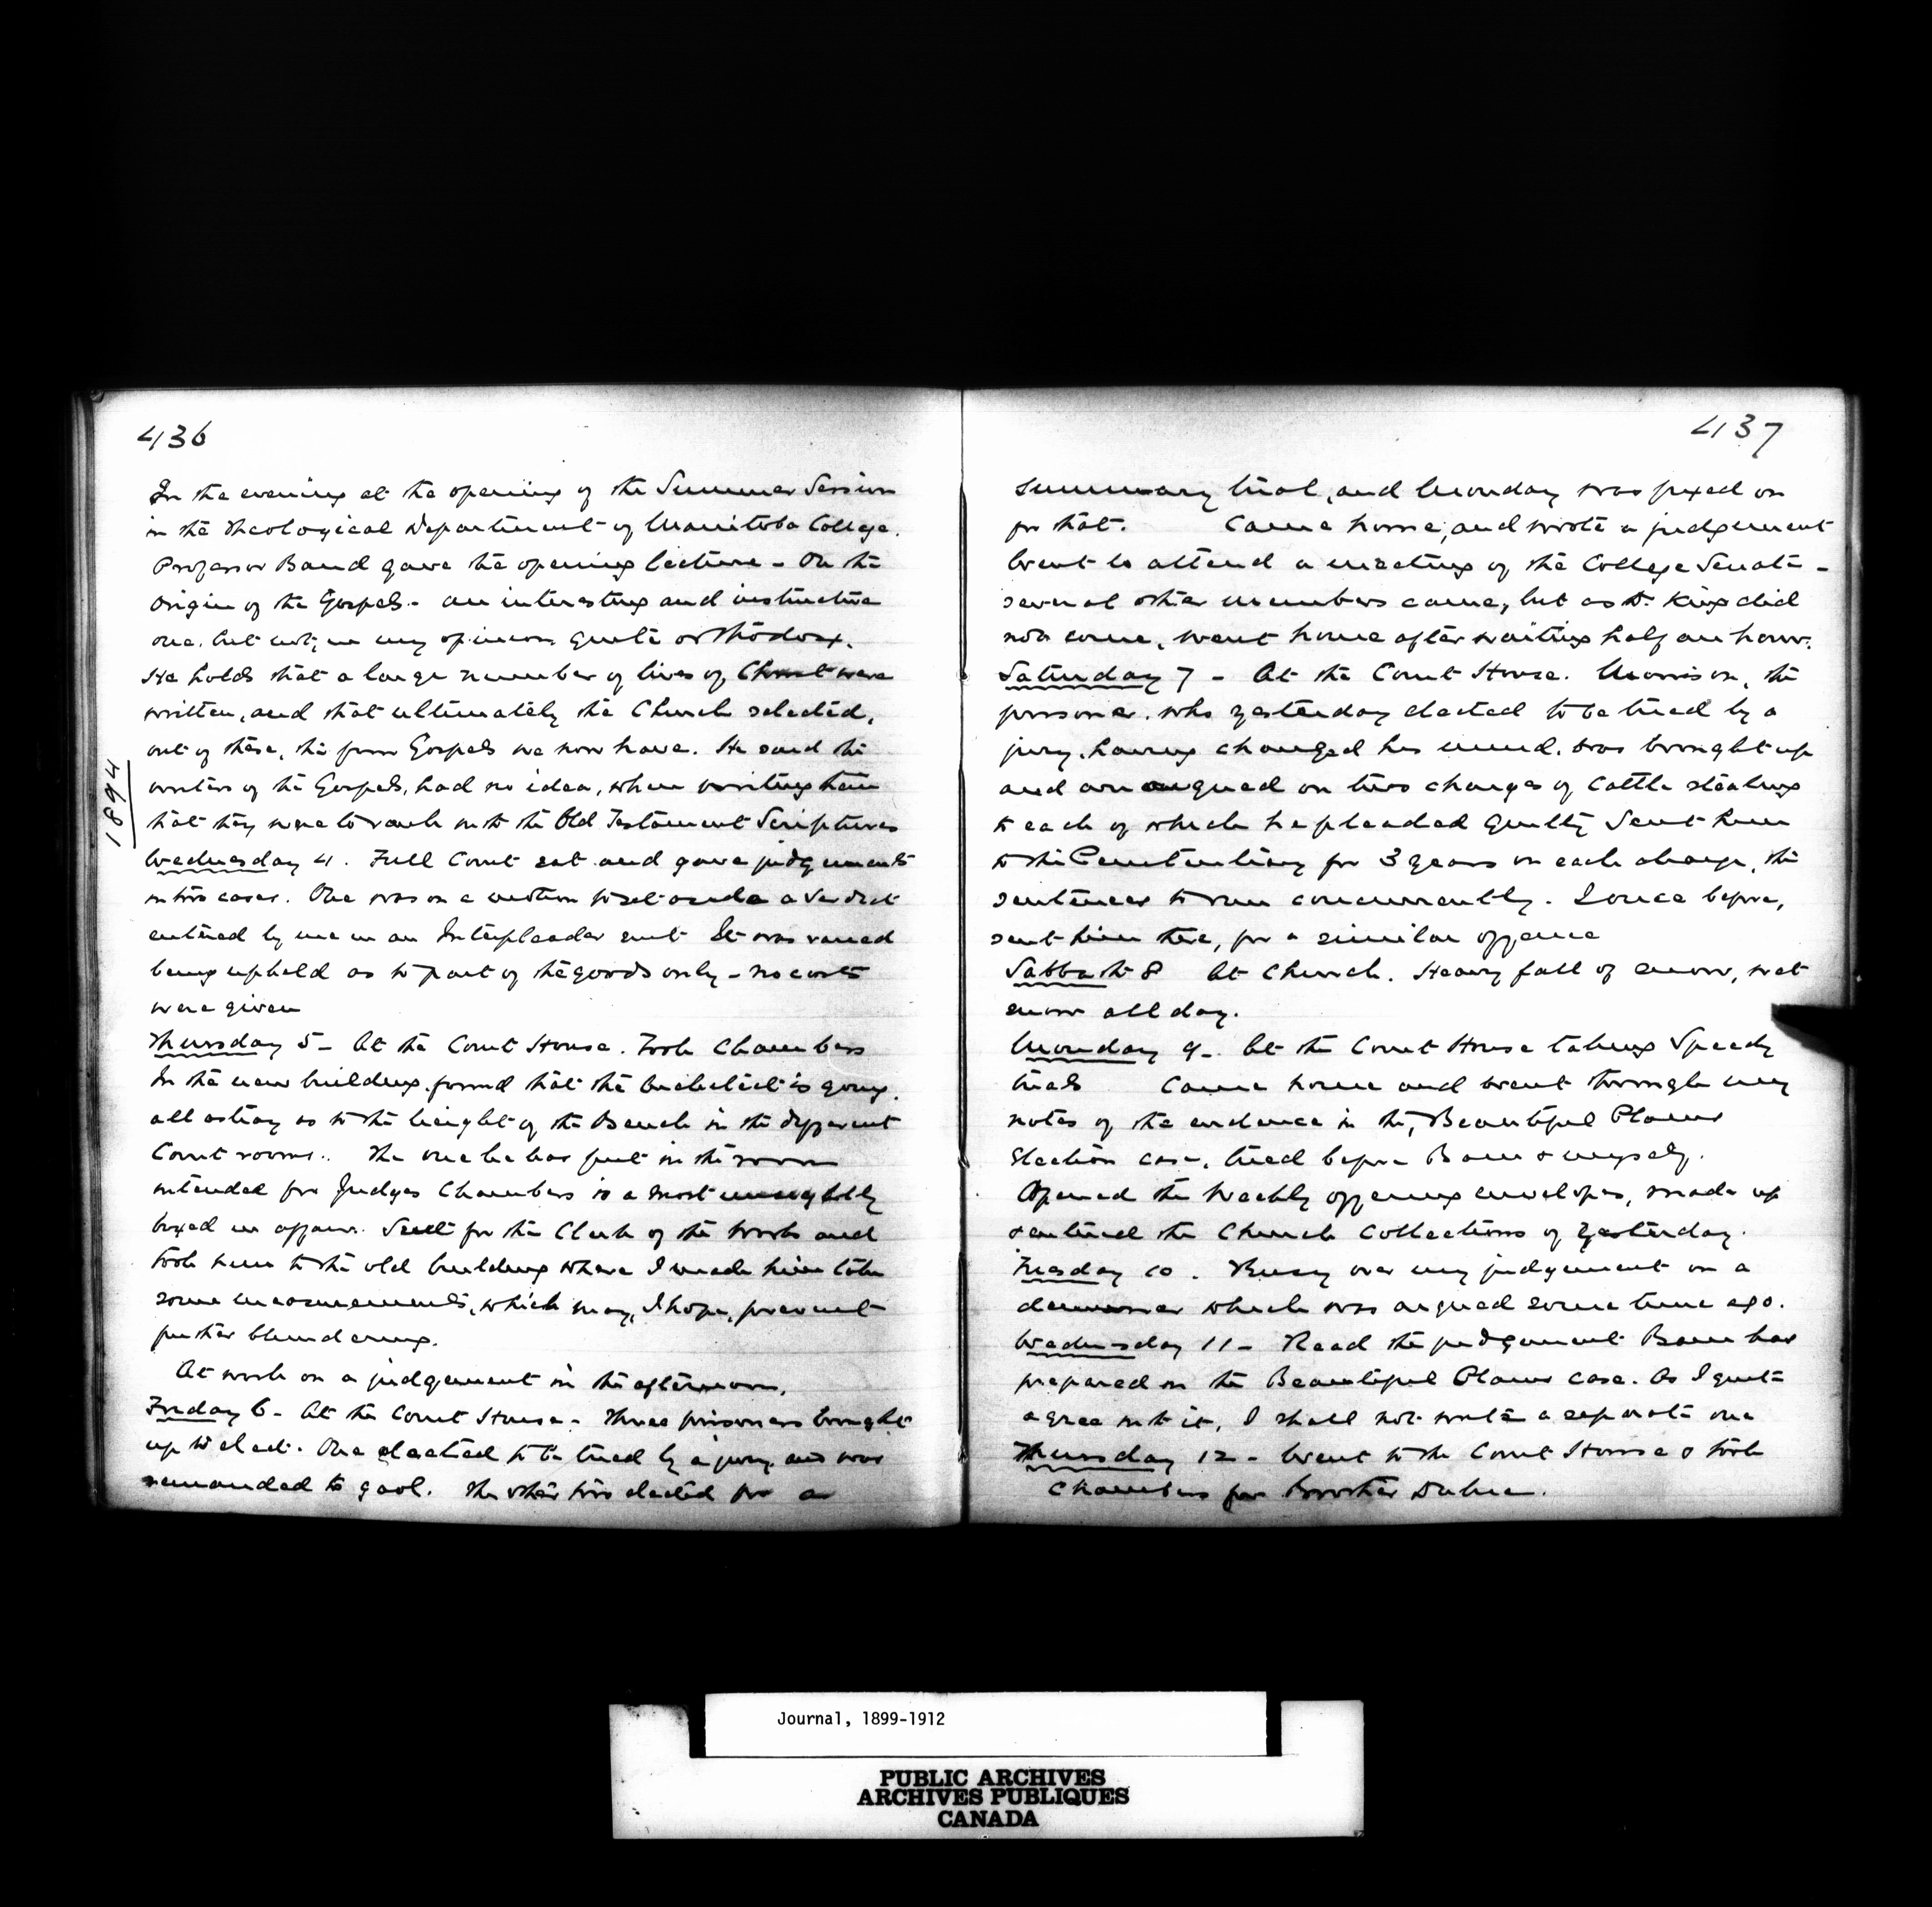 436
In the evening at the opening of the Summer Session
in the Theological Department of Manitoba College.
Professor Baird gave the opening lecture - On the
Origin of the Gospels - an interesting and instructive
one, but not, in my opinion quite orthodox.
He holds that a large number of lives of Christ were
written, and that ultimately the Church selected,
out of these, the four Gospels we now have. He said the
writers of the Gospels, had no idea, when writing them
that they were to rank with the Old Testament Scriptures
1894
Wednesday 4. Full Court sat and gave judgements
in two cases. One was on a motion to set aside a verdict
entered by me in an Interpleader suit It was varied
being upheld as to part of the goods only - no costs
were given
Thursday 5 - At the Court House. Took Chambers
In the new building found that the Architect is going
all astray as to the height of the Bench in the different
Court rooms. The one he has put in the room
intended for Judges Chambers is a most unsightly
boxed in affair. Sent for the Clerk of the Works and
took him to the old building where I made him take
some measurements, which may, I hope, prevent
further blundering.
At work on a judgement in the afternoon.
Friday 6 - At the Court House - Three prisoners brought
up to elect. One elected to be tried by a jury and was
remanded to gaol. The other two elected for a
437
summary trial, and Monday was fixed on
for that. Came home, and wrote a judgement
Went to attend a meeting of the College Senate -
several other members came, but as Dr King did
not come, went home after waiting half an hour.
Saturday 7 - At the Court House. Morrison, the
prisoner, who yesterday elected to be tried by a
jury, having changed his mind, was brought up
and arraigned on two charges of Cattle stealing
to each of which he pleaded guilty Sent him
to the Penitentiary for 3 years on each charge, the
sentences to run concurrently. I once before,
sent him there, for a similar offence
Sabbath 8 At Church. Heavy fall of snow, wet
snow all day.
Monday 9 - At the Court House taking Speedy
trials Came home and went through my
notes of the evidence in the, Beautiful Plains
Election case, tried before Bain & myself.
Opened the Weekly offering envelopes, made up
& entered the Church Collections of yesterday.
Tuesday 10. Busy over my judgement on a
demurrer which was argued some time ago.
Wednesday 11 - Read the judgement Bain has
prepared in the Beautiful Plains case. As I quite
agree with it, I shall not write a separate one
Thursday 12 - Went to the Court House & took
Chambers for Brother Dubuc.
Journal, 1899-1912
PUBLIC ARCHIVES
ARCHIVES PUBLIQUES
CANADA